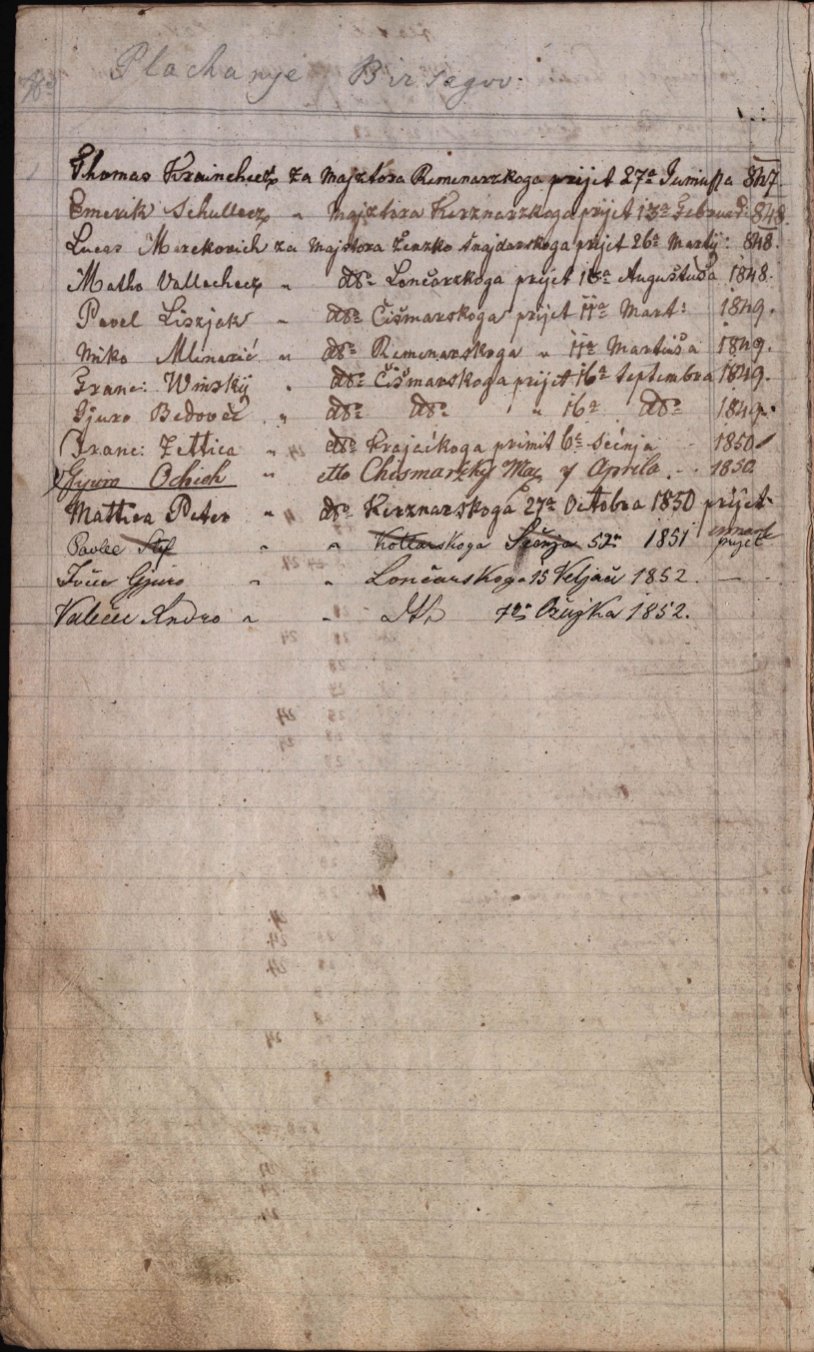 No Plachanje Birsegov.
Thomas Krainchecz za Majztora Remenarzkoga prijet 27a 847
Emerik Schullecz " Majztora Kerznarzkoga prijet 13a Februar: 848.
Lucas Marckovich za Majstora Zenzko Šnajdarskoga prijet 26a Martij: 848.
Matho Vallechecz " dto Lončarzkoga prijet 13a Augustuša 1848.
Pavel Liszjak " dto Čišmarskoga prijet 11a Mart: 1849.
Miko Mlinarić " dto Remenarskoga " 11a Martuša 1849.
Franc: Winsky " dto Čišmarskoga prijet 16a Septembra 1849.
Gjuro Bedoveč " dto dto " 16a dto 1849.
Franc: Zettica " dto Krajačkoga primit 6a Sečnja - 1850
Gyuro Ochich " etto Chismarzky Maz Aprila - 1850
Mattiea Peter " dto Kerznarskoga 27a Octobra 1850 prijet
Pavlec Stef " " Kottarskoga Sečnja 1851 prijet
Ivčec Gjuro " " Lončarskoga 15 Veljači 1852. -
Valečec Andro " " Dtto Ožujka 1852.